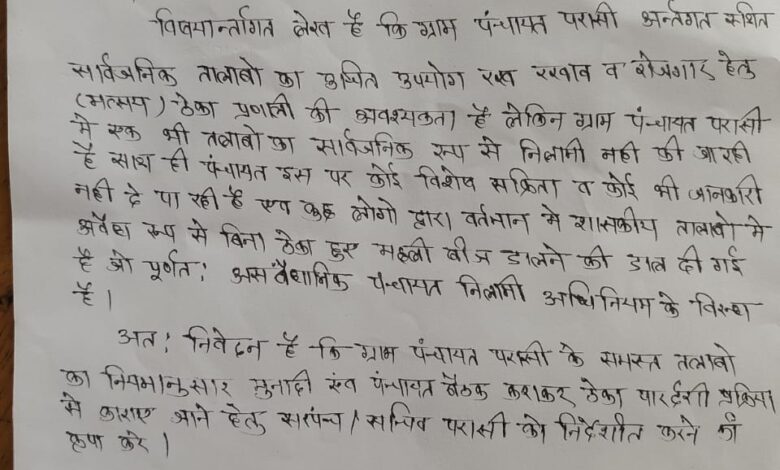 विषयान्तर्गत लेख है कि ग्राम पंचायत परासी अर्न्तगत स्थित
सार्वजनिक तालाबो का उचित उपयोग रख रखाव व रोजगार हेतु
(मत्सय) ठेका प्रणाली की आवश्यकता है लेकिन ग्राम पंचायत परासी
मे एक भी तलाबो का सार्वजनिक रूप से निलामी नही की जा रही
है साथ ही पंचायत इस पर कोई विशेष सक्रिता व कोई भी जानकारी
नही दे पा रही है एवं कुछ लोगो द्वारा वर्तमान मे शासकीय तालाबो मे
अवैध रूप से बिना ठेका हुए मछली बीज डालने की डाल दी गई
है जो पूर्णत: असंवैधानिक पंचायत निलामी अधिनियम के विरुध
है।
अत: निवेदन है कि ग्राम पंचायत परासी के समस्त तलाबो
का नियमानुसार मुनादी एंव पंचायत बैठक कराकर ठेका पारर्दशी प्रक्रिया
से कराए जाने हेतु सरपंच / सचिव परासी को निर्देशीत करने की
कृपा करे।